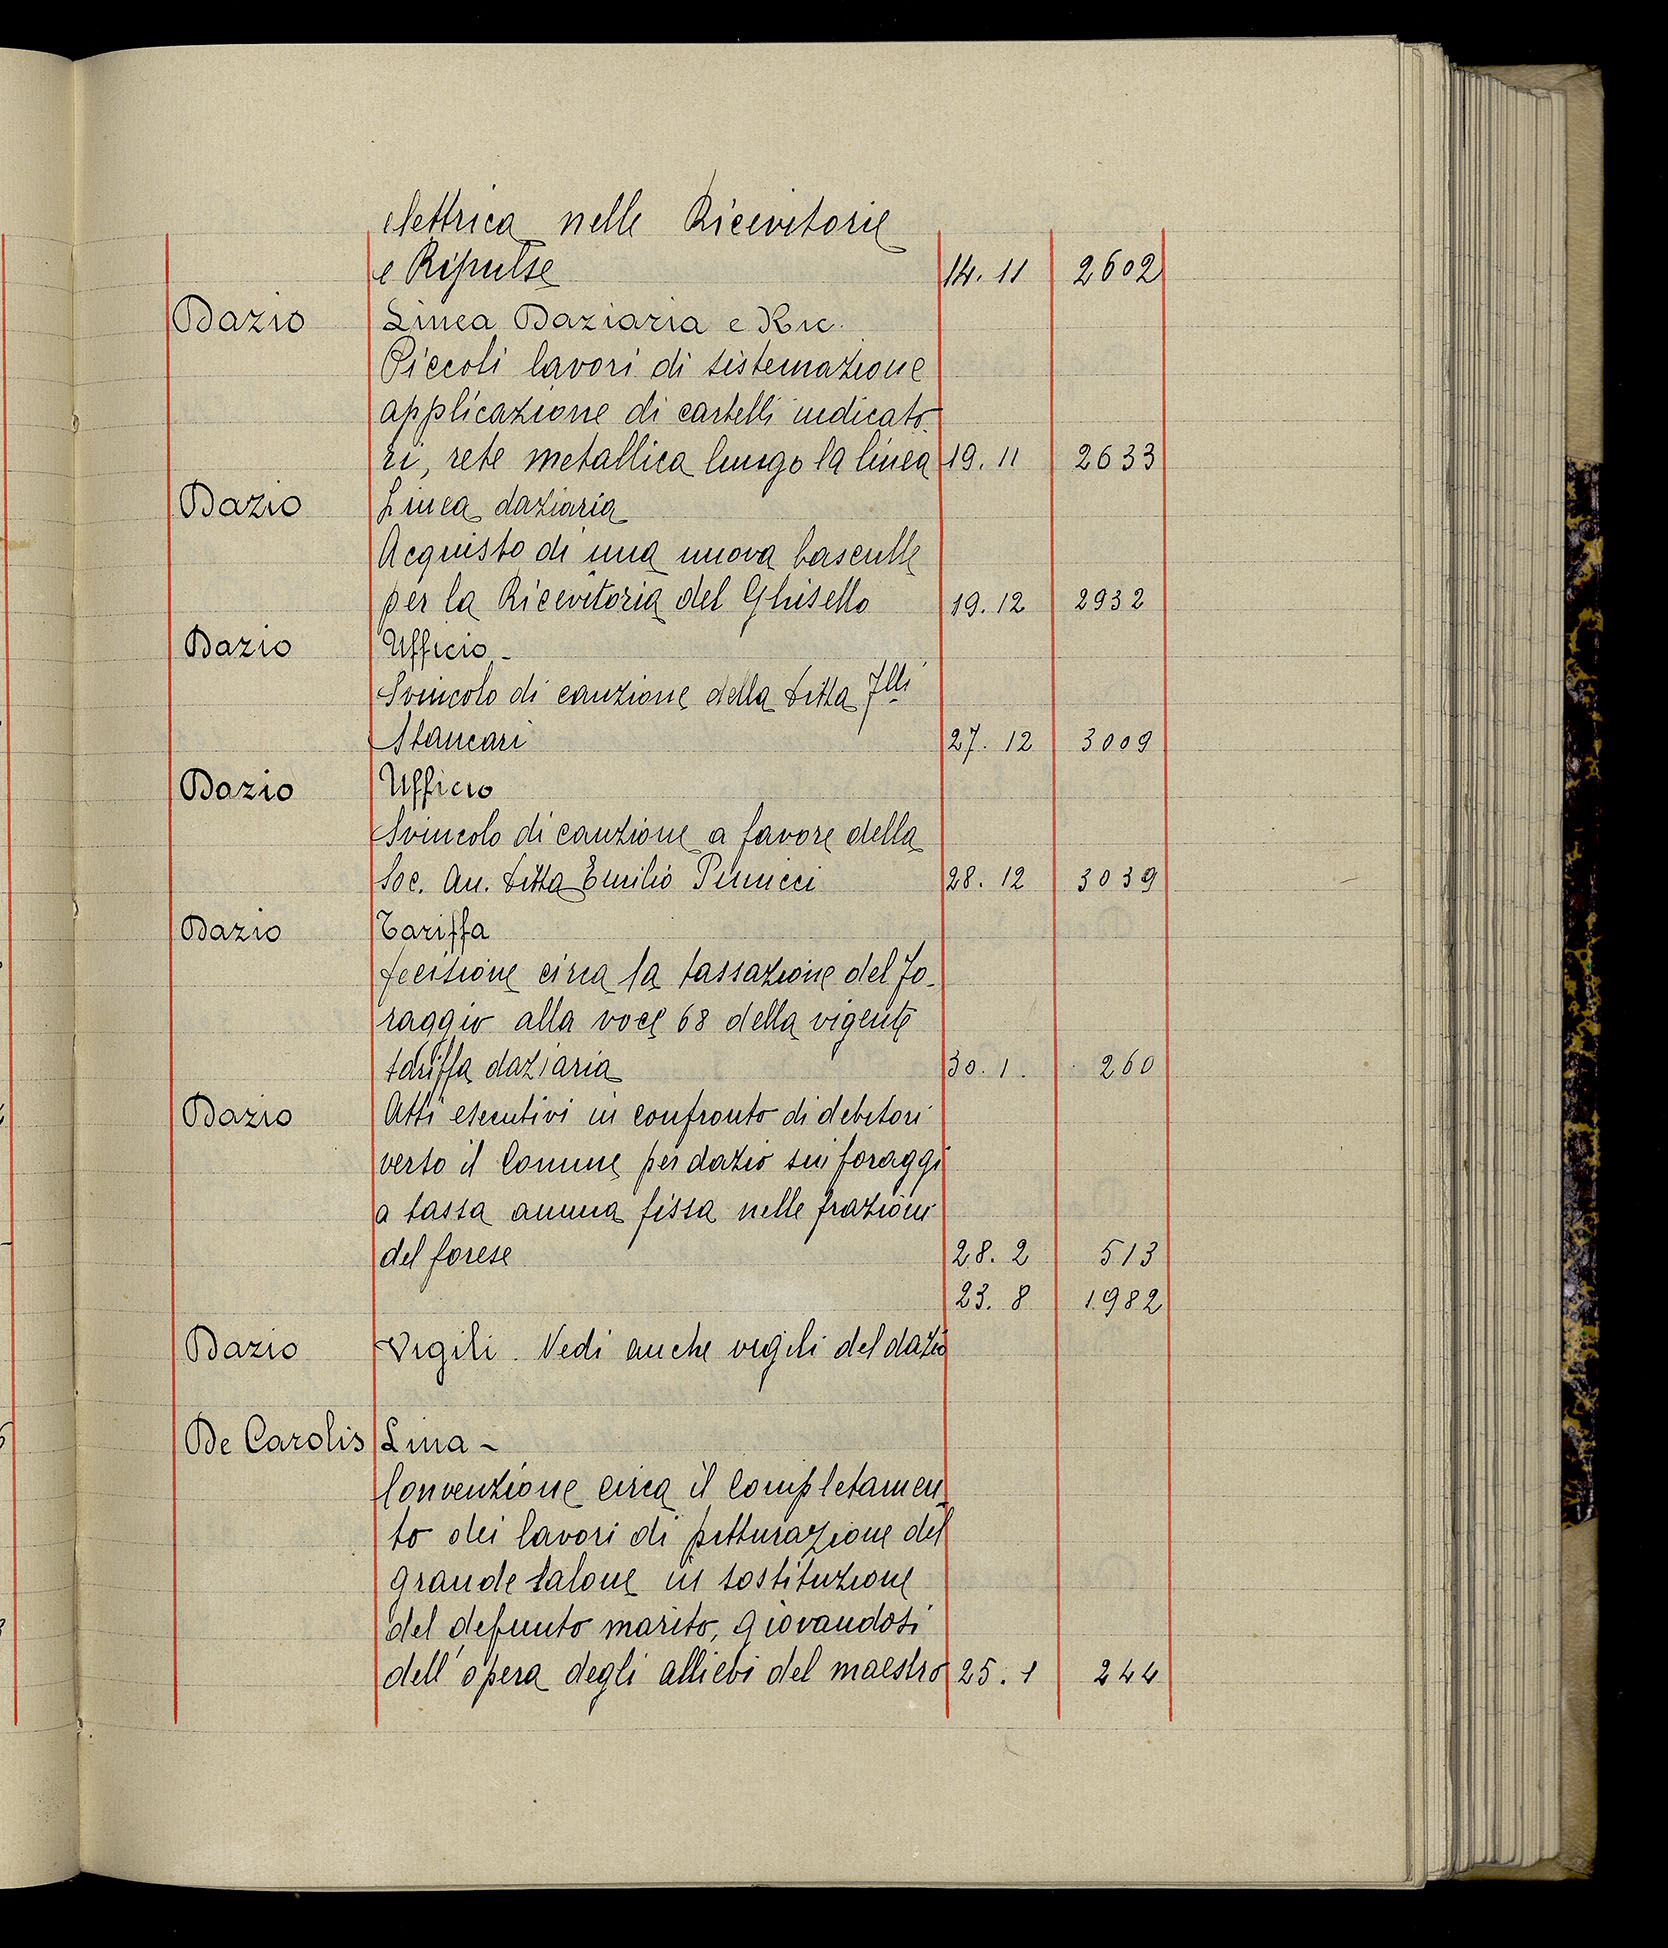 elettrica nelle Ricevitorie
e Ripulse 14. 11 2602
Dazio Linea Daziaria e Ric.
Piccoli lavori di sistemazione
applicazione di cartelli indicato-
ri, rete metallica lungo la linea 19. 11 2633
Dazio Linea daziaria
Acquisto di una nuova basculle
per la Ricevitoria del Ghisello 19. 12 2932
Dazio Ufficio -
Svincolo di cauzione della ditta Flli
Stancari 27. 12 3009
Dazio Ufficio
Svincolo di cauzione a favore della
Soc. An. ditta Emilio 28. 12 3039
Dazio Tariffa
Decisione circa la tassazione del fo-
raggio alla voce 68 della vigente
tariffa daziaria 30. 1. 260
Dazio Atti esecutivi in confronto di debitori
verso il Comune per dazio sui foraggi
a tassa annua fissa nelle frazioni
del forese 28. 2 513
23. 8 1982
Dazio Vigili. Vedi anche vigili del dazio
De Carolis Lina -
Convenzione circa il completamen-
to dei lavori di pitturazione del
grande salone in sostituzione
del defunto marito, giovandosi
dell'opera degli allievi del maestro 25. 1 244